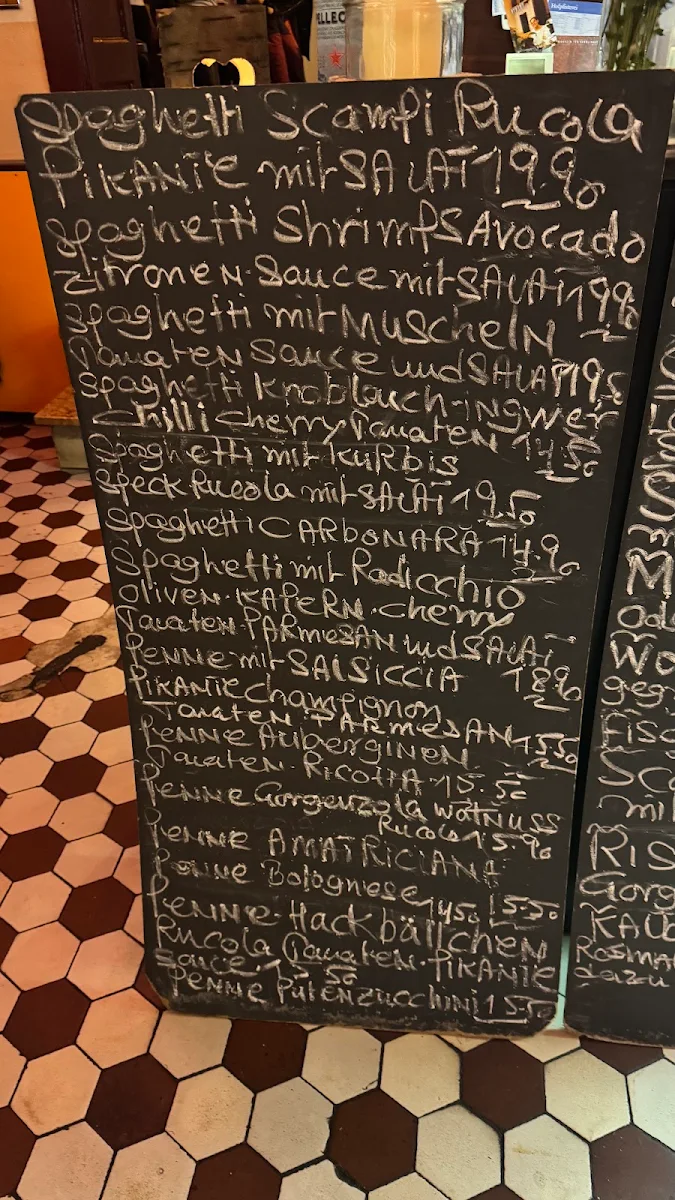 Spaghetti Scampi Rucola
PIKANTE mit SALAT 19.90
Spaghetti Shrimps Avocado
Zitronen-Sauce mit SALAT 19.90
Spaghetti mit Muscheln
Tomaten Sauce und SALAT 19.5
Spaghetti Knoblauch-INGWER
Chilli Cherry Tomaten 14.50
Spaghetti mit KURBIS
SPECK Rucola mit SALAT 19.50
Spaghetti CARBONARA 14.90
Spaghetti mit Radicchio
OLIVEN-KAPERN-cherry
Tomaten-PARMESAN und SALAT
PENNE mit SALSICCIA 18.90
PIKANTE Champignon
Tomaten-PARMESAN 15.50
PENNE AUBERGINEN
Tomaten-RICOTTA 15.50
PENNE Gorgonzola WALNUSS
Rucola 15.90
PENNE AMATRICIANA
PENNE Bolognese 14.50 15.50
PENNE-Hackbällchen
Rucola Tomaten-PIKANTE
Sauce 50
PENNE PUTENZUCCHINI 15.50
RIS
Gorg
Rosma
dazu